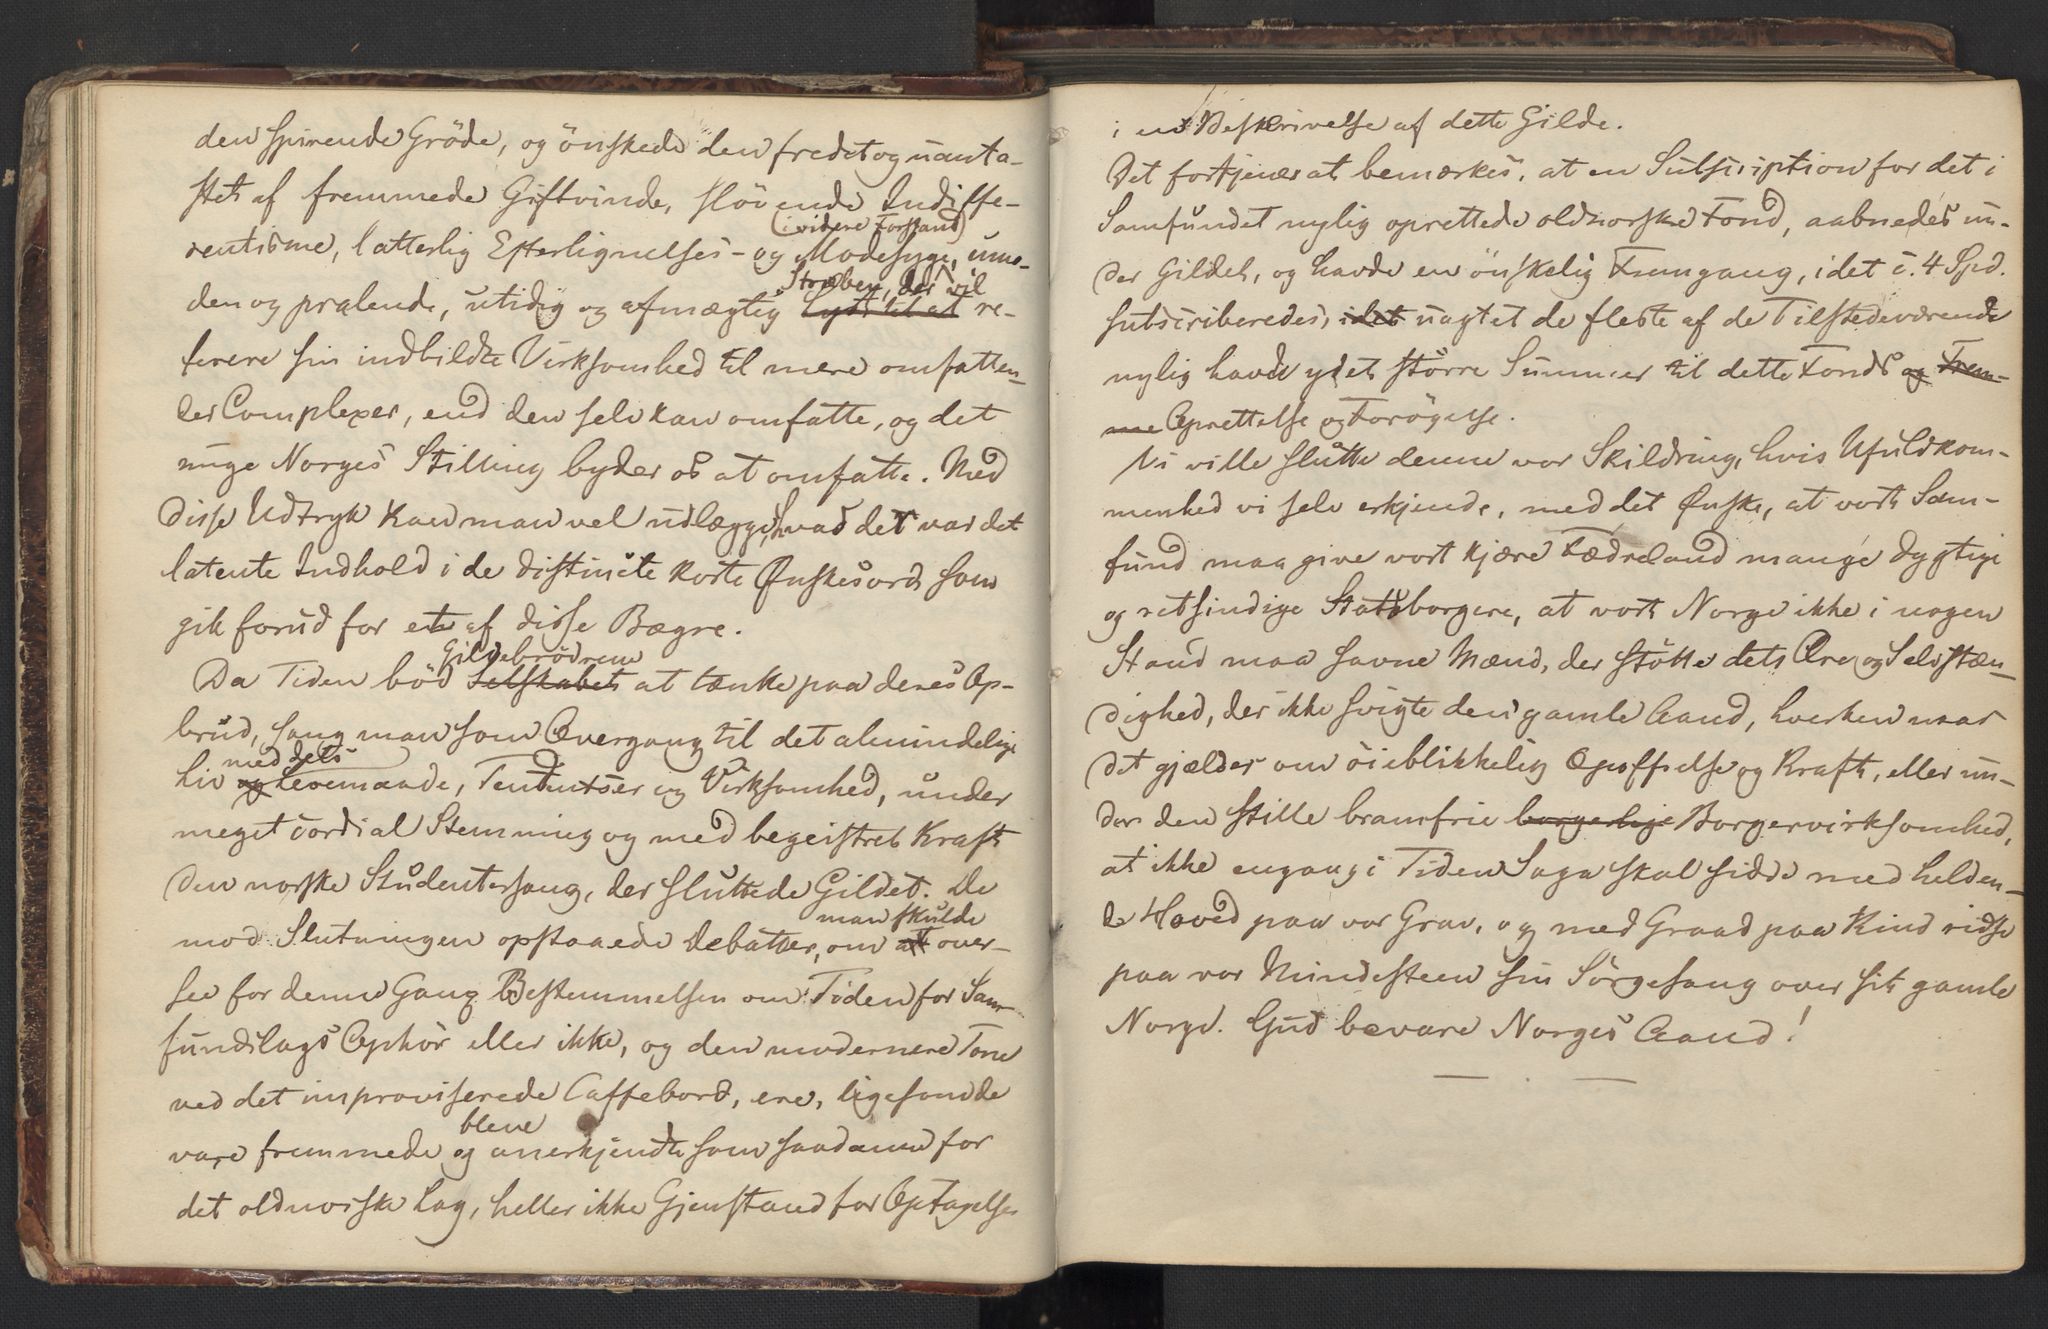 den spirende Gröde, og önskede den fredet og uanta-
stet af fremmede Giftvinde, slövende Indiffe-
(i videre Forstand)
rentisme, latterlig Efterlignelses- og Modesyge, umo-
Stræben, der vil
den og pralende, utidig og afmægtig Lyst til at re-
ferere sin indbildte Virksomhed til mere omfatten-
des Complexer, end den selv kan omfatte, og det
unge Norges Stilling byder os at omfatte. Med
disse Udtryk kan man vel udlægge, hvad der var det
latente Indhold i de distincte korte Ønskesord som
gik forud for et af disse Bægre.
Gildebrödrene
Da Tiden böd Selskabet at tænke paa deres Op-
brud, sang man som Overgang til det almindelige
med dets
Liv og Levemaade, Tendentser og Virksomhed, under
meget cordial Stemning og med begeistret Kraft
den norske Studentersang, der sluttede Gildet. De
man skulde
mod Slutningen opstaaede Debatter, om at over-
see for denne Gang Bestemmelsen om Tiden for Sam-
fundslags Ophör eller ikke, og den modernere Tone
ved det improviserede Caffebord, ere, ligesom de
bleve
vare fremmede og anerkjendte som saadanne for
det oldnorske Lag, heller ikke Gjenstand for Optagelse
i en Beskrivelse af dette Gilde.
Det fortjener at bemærkes, at en Subscription for det i
Samfundet nylig oprettede oldnorske Fond, aabnedes un-
der Gildet, og havde en önskelig Fremgang, idet c. 4 Spd.
subscriberedes, idet uagtet de fleste af de Tilstedeværende
nylig havde ydet större Summer til dette Fonds og Frem-
me Oprettelse og Forögelse.
Vi ville slutte denne vor Skildring, hvis Ufuldkom-
menhed vi selv erkjende, med det Ønske, at vort Sam-
fund maa give vort kjære Fædreland mange dygtige
og retsindige Statsborgere, at vort Norge ikke i nogen
Stand maa savne Mænd, der stötte dets Ære og Selvstæn-
dighed, der ikke svigte den gamle Aand, hverken naar
det gjælder om öieblikkelig Opoffrelse og Kraft, eller un-
der den stille bramfrie borgerlige Borgervirksomhed,
at ikke engang i Tiden Saga skal sidde med helden-
de Hoved paa vor Grav, og med Graad paa Kind ridse
paa vor Mindesteen sin Sörgesang over sit gamle
Norge. Gud bevare Norges Aand!